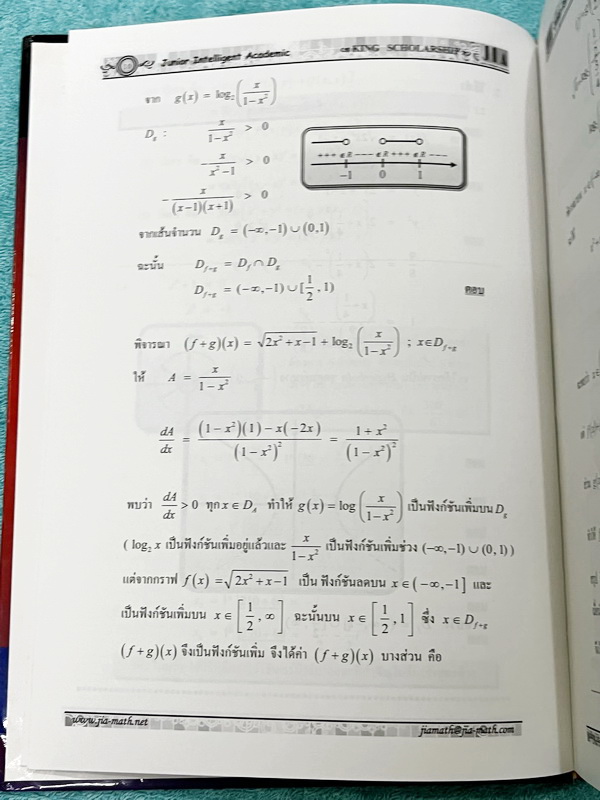 Junior Intelligent Academic
KING SCHOLARSHIP
จาก g(x) = log₂(x/(1−x²))
D_g : x/(1−x²) > 0
−x/(x²−1) > 0
−x/((x−1)(x+1)) > 0
+++ ∉R −−− ∉R +++ ∉R −−−
−1 0 1
จากเส้นจำนวน D_g = (−∞,−1)∪(0,1)
ฉะนั้น D_{f+g} = D_f ∩ D_g
D_{f+g} = (−∞,−1)∪[1/2,1)
ตอบ
พิจารณา (f+g)(x) = √(2x²+x−1) + log₂(x/(1−x²)) ; x∈D_{f+g}
ให้ A = x/(1−x²)
dA/dx = ((1−x²)(1)−x(−2x))/(1−x²)² = (1+x²)/(1−x²)²
พบว่า dA/dx > 0 ทุก x∈D_A ทำให้ g(x) = log(x/(1−x²)) เป็นฟังก์ชันเพิ่มบน D_g
( log₂x เป็นฟังก์ชันเพิ่มอยู่แล้วและ x/(1−x²) เป็นฟังก์ชันเพิ่มช่วง (−∞,−1)∪(0,1))
แต่จากกราฟ f(x) = √(2x²+x−1) เป็น ฟังก์ชันลดบน x∈(−∞,−1] และ
เป็นฟังก์ชันเพิ่มบน x∈[1/2,∞] ฉะนั้นบน x∈[1/2,1] ซึ่ง x∈D_{f+g}
(f+g)(x) จึงเป็นฟังก์ชันเพิ่ม จึงได้ค่า (f+g)(x) บางส่วน คือ
www.jia-math.net
jiamath@jia-math.com